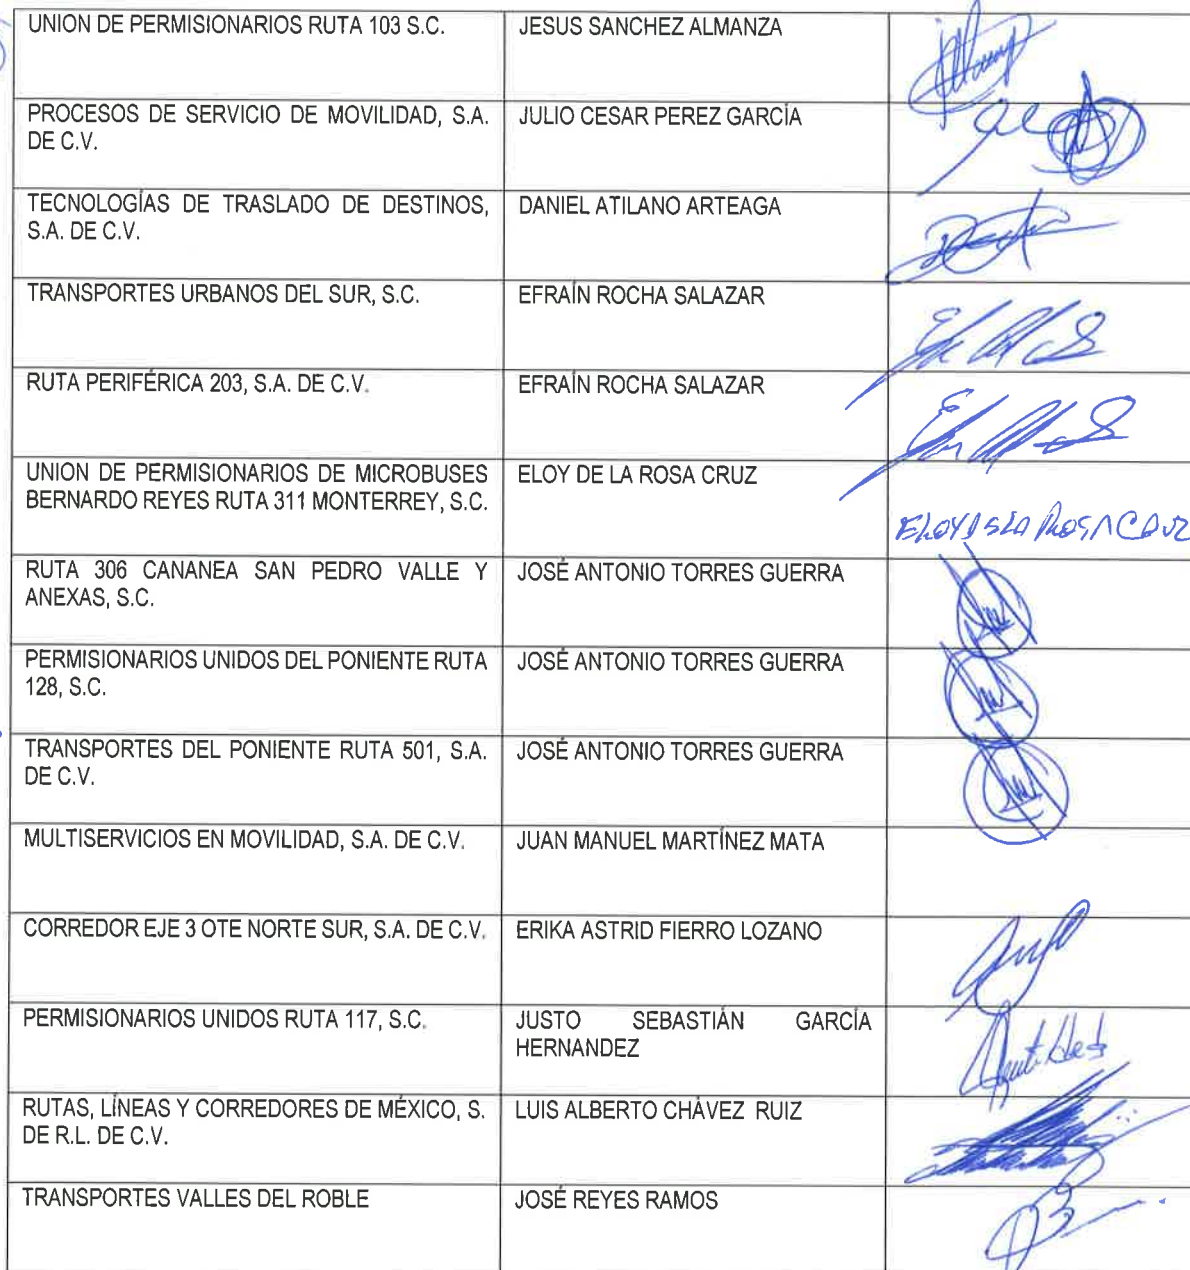 UNION DE PERMISIONARIOS RUTA 103 S.C.
JESUS SANCHEZ ALMANZA
PROCESOS DE SERVICIO DE MOVILIDAD, S.A.
DE C.V.
JULIO CESAR PEREZ GARCÍA
TECNOLOGÍAS DE TRASLADO DE DESTINOS,
S.A. DE C.V.
DANIEL ATILANO ARTEAGA
TRANSPORTES URBANOS DEL SUR, S.C.
EFRAÍN ROCHA SALAZAR
RUTA PERIFÉRICA 203, S.A. DE C.V.
EFRAÍN ROCHA SALAZAR
UNION DE PERMISIONARIOS DE MICROBUSES
BERNARDO REYES RUTA 311 MONTERREY, S.C.
ELOY DE LA ROSA CRUZ
RUTA 306 CANANEA SAN PEDRO VALLE Y
ANEXAS, S.C.
JOSÉ ANTONIO TORRES GUERRA
PERMISIONARIOS UNIDOS DEL PONIENTE RUTA
128, S.C.
JOSÉ ANTONIO TORRES GUERRA
TRANSPORTES DEL PONIENTE RUTA 501, S.A.
DE C.V.
JOSÉ ANTONIO TORRES GUERRA
MULTISERVICIOS EN MOVILIDAD, S.A. DE C.V.
JUAN MANUEL MARTÍNEZ MATA
CORREDOR EJE 3 OTE NORTE SUR, S.A. DE C.V.
ERIKA ASTRID FIERRO LOZANO
PERMISIONARIOS UNIDOS RUTA 117, S.C.
JUSTO SEBASTIÁN GARCÍA
HERNANDEZ
RUTAS, LÍNEAS Y CORREDORES DE MÉXICO, S.
DE R.L. DE C.V.
LUIS ALBERTO CHÁVEZ RUIZ
TRANSPORTES VALLES DEL ROBLE
JOSÉ REYES RAMOS